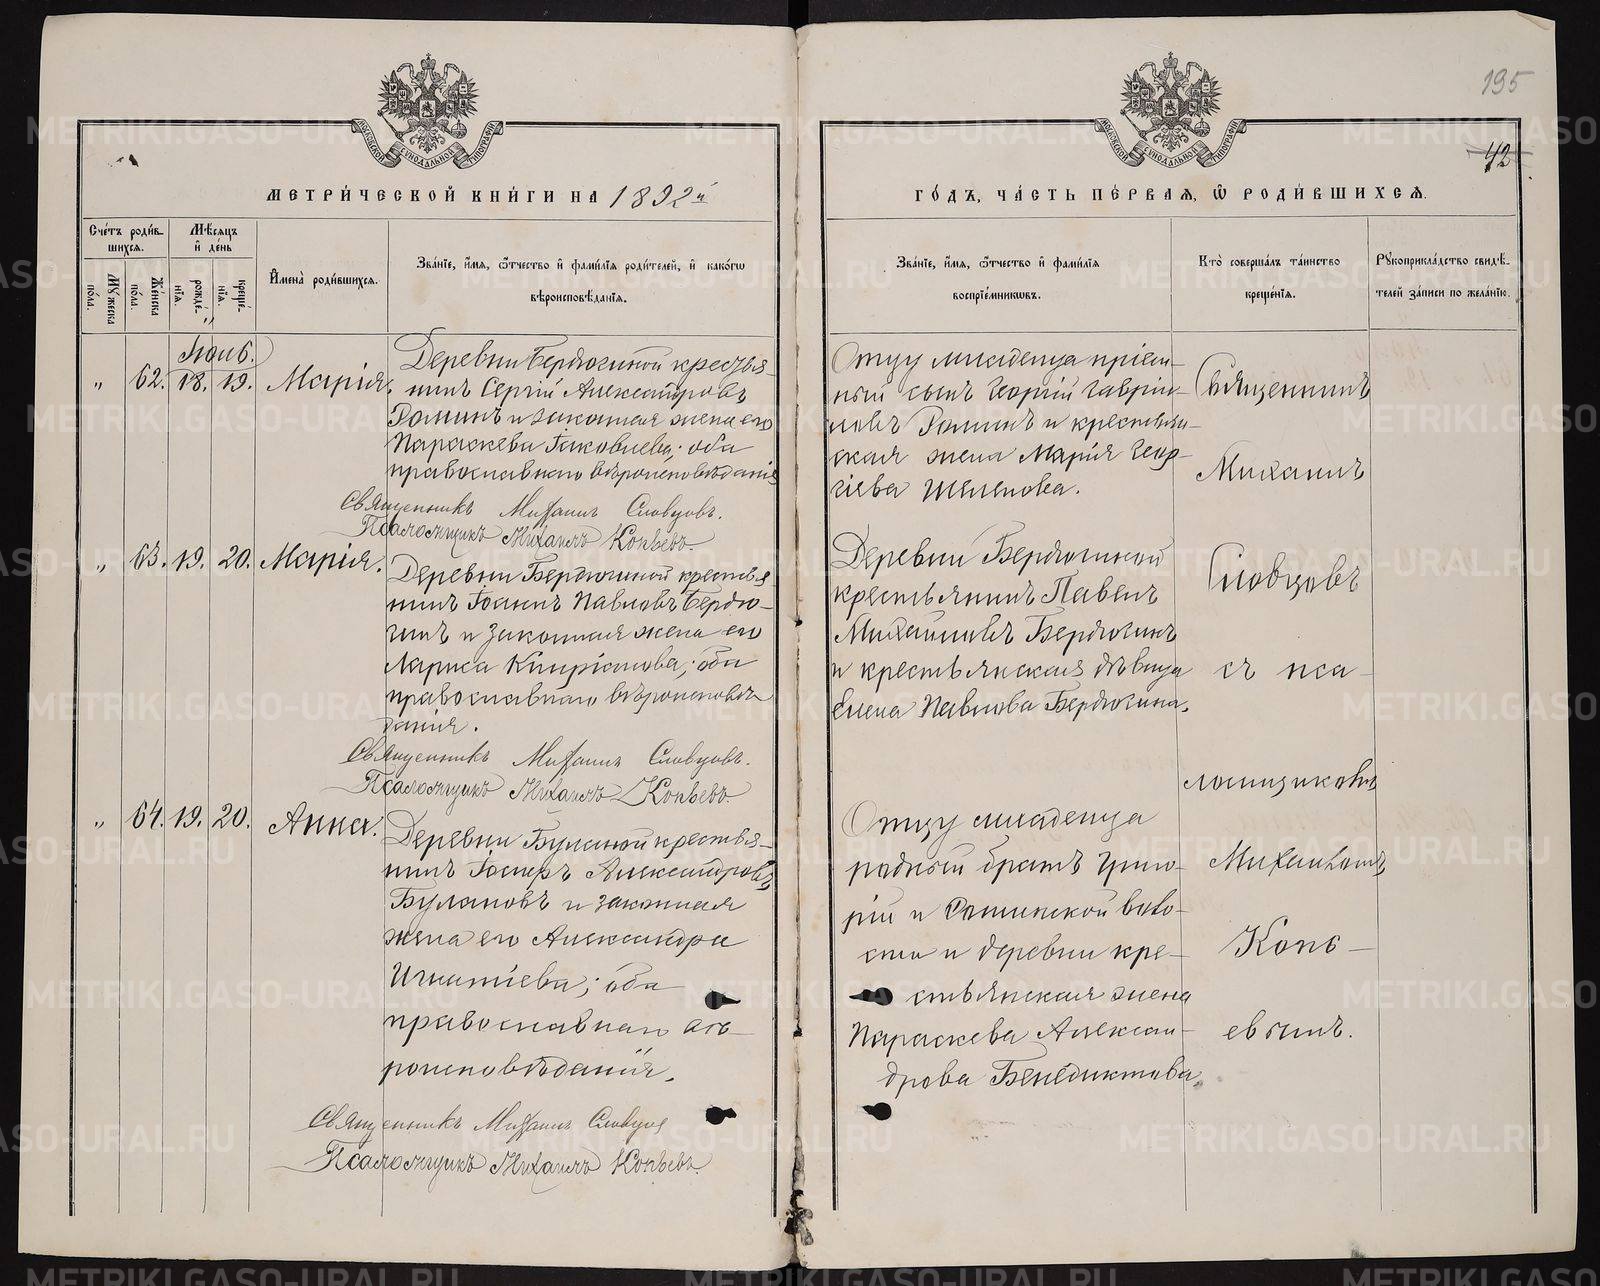 195
42
МЕТРИ́ЧЕСКОЙ КНИ́ГИ НА 1892й
ГО́ДЪ, ЧА́СТЬ ПЕ́РВАЯ, Ѿ РОДИ́ВШИХСЯ.
Сче́тъ роди́в-
шихся.
Му́жеска по́ла.
Же́нска по́ла.
Мѣ́сяцъ
и де́нь
рожде́-
нїя.
креще́-
нїя.
Имена̀ роди́вшихся.
Зва́нїе, имя, ѿтчество и фами́лїя роди́телей, и како́гѡ
вѣроисповѣ́данїя.
Зва́нїе, имя, ѿтчество и фами́лїя
воспрїе́мникѡвъ.
Кто̀ соверша́лъ та́инство
креще́нїя.
Рꙋкоприкла́дство свидѣ́-
телей за́писи по жела́нїю.
Нояб.
„ 62. 18. 19. Марія.
Деревни Бердюгиной крестья-
нинъ Сергій Александровъ
Роминъ и законная жена его
Параскева Іаковлева; оба
православнаго вѣроисповѣданія
Священникъ Михаилъ Словцовъ.
Псаломщикъ Михаилъ Копьевъ.
Отцу младенца пріем-
ный сынъ Георгій Гаврі-
ловъ Роминъ и крестьян-
ская жена Марія Геор-
гіева Шеломова.
„ 63. 19. 20. Марія.
Деревни Бердюгиной крестья-
нинъ Іоаннъ Павловъ Бердю-
гинъ и законная жена его
Лариса Кипріанова; оба
православнаго вѣроисповѣ-
данія.
Священникъ Михаилъ Словцовъ.
Псаломщикъ Михаилъ Копьевъ.
Деревни Бердюгиной
крестьянинъ Павелъ
Михаиловъ Бердюгинъ
и крестьянская дѣвица
Елена Павлова Бердюгина.
„ 64. 19. 20. Анна.
Деревни Булановой крестья-
нинъ Александровъ
Булановъ и законная
жена его Александра
Игнатіева; оба
православнаго вѣ-
роисповѣданія.
Священникъ Михаилъ Словцов
Псаломщикъ Михаилъ Копьевъ.
Отцу младенца
родный братъ Григо-
рій и волости
и деревни кре-
стьянская жена
Параскева Алексан-
дрова Бенедиктова.
Священникъ
Михаилъ
Словцовъ
съ пса-
ломщикомъ
Михаиломъ
Копь-
евымъ.
METRIKI.GASO-URAL.RU